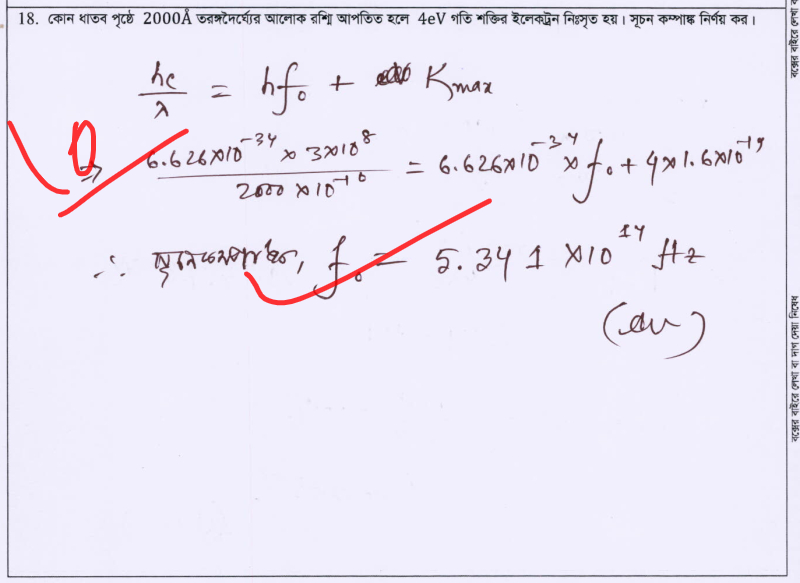 18. কোন ধাতব পৃষ্ঠে 2000Å তরঙ্গদৈর্ঘ্যের আলোক রশ্মি আপতিত হলে 4eV গতি শক্তির ইলেকট্রন নিঃসৃত হয়। সূচন কম্পাঙ্ক নির্ণয় কর।
hc/λ = hf₀ + Kmax
⇒ 6.626×10⁻³⁴ × 3×10⁸ / 2000×10⁻¹⁰ = 6.626×10⁻³⁴ × f₀ + 4×1.6×10⁻¹⁹
∴ সূচনকম্পাঙ্ক, f₀ = 5.341 ×10¹⁴ Hz
(Ans)
বক্সের বাইরে লেখা বা দাগ দেয়া নিষেধ
বক্সের বাইরে লেখা ব